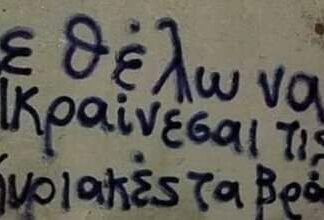 ε θέλω να
ικραίνεσαι τις
υριακές τα βρά